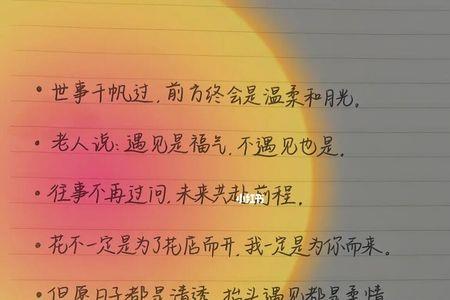 • 世事千帆过，前方终会是温柔和月光。
• 老人说：遇见是福气，不遇见也是。
• 往事不再过问，未来共赴前程。
小红书
• 花不一定是为了花店而开，我一定是为你而来。
• 但愿日子都是清透，抬头遇见都是柔情